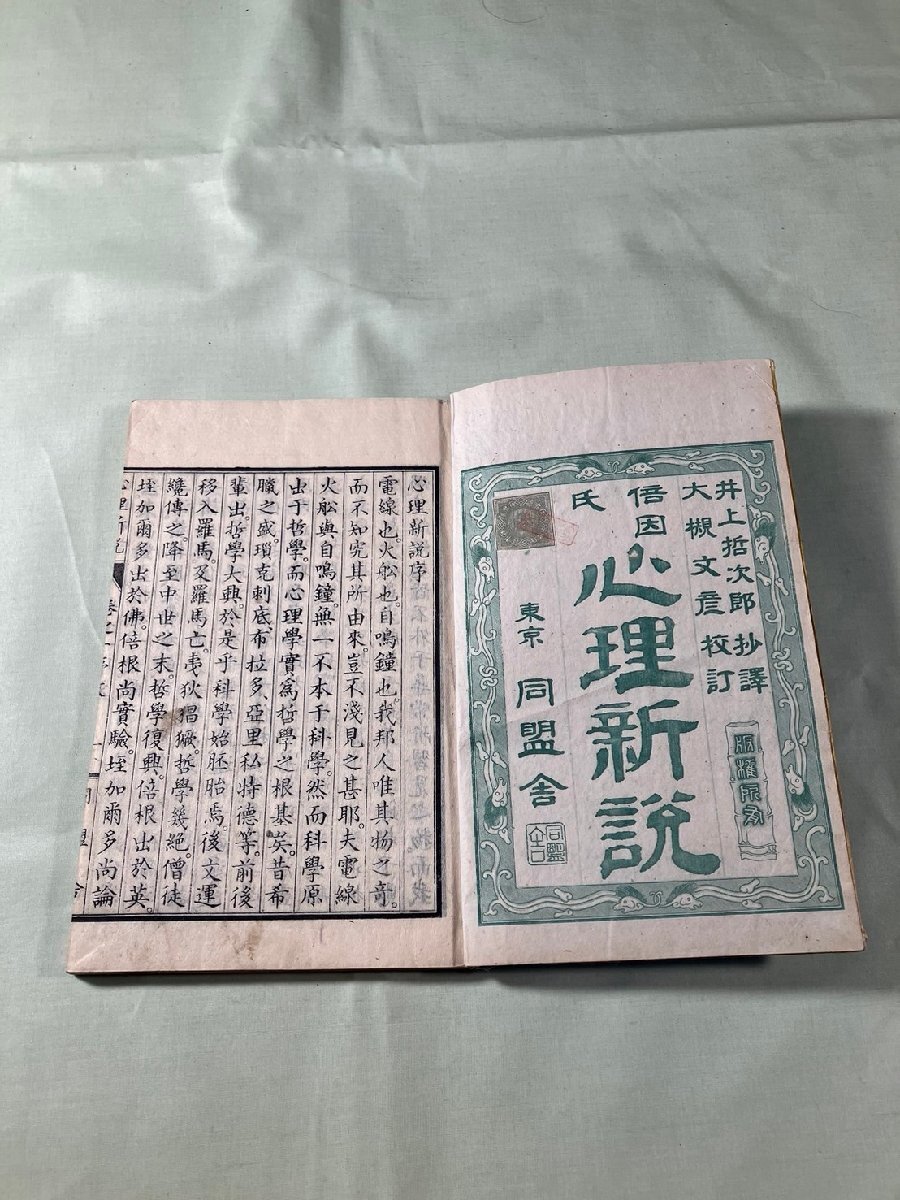 井上哲次郎 抄譯
大槻文彥 校訂
倍因氏
心理新說
版權所有
東京 同盟舍
心理新說序
電線也。火舩也。自鳴鐘也。我邦人唯其物之奇。
而不知究其所由來。豈不淺見之甚耶。夫電線
火舩與自鳴鐘。無一不本于科學。然而科學原
出于哲學。而心理學實爲哲學之根基矣。昔希
臘之盛。瑣克刺底布拉多。亞里私特德等。前後
輩出。哲學大興。於是乎科學始胚胎焉。後文運
移入羅馬。及羅馬亡。夷狄猖獗。哲學幾絕。僧徒
纔傳之。降至中世之末。哲學復興。倍根出於英。
垤加爾多出於佛。倍根尚實驗。垤加爾多尚論
心理新說